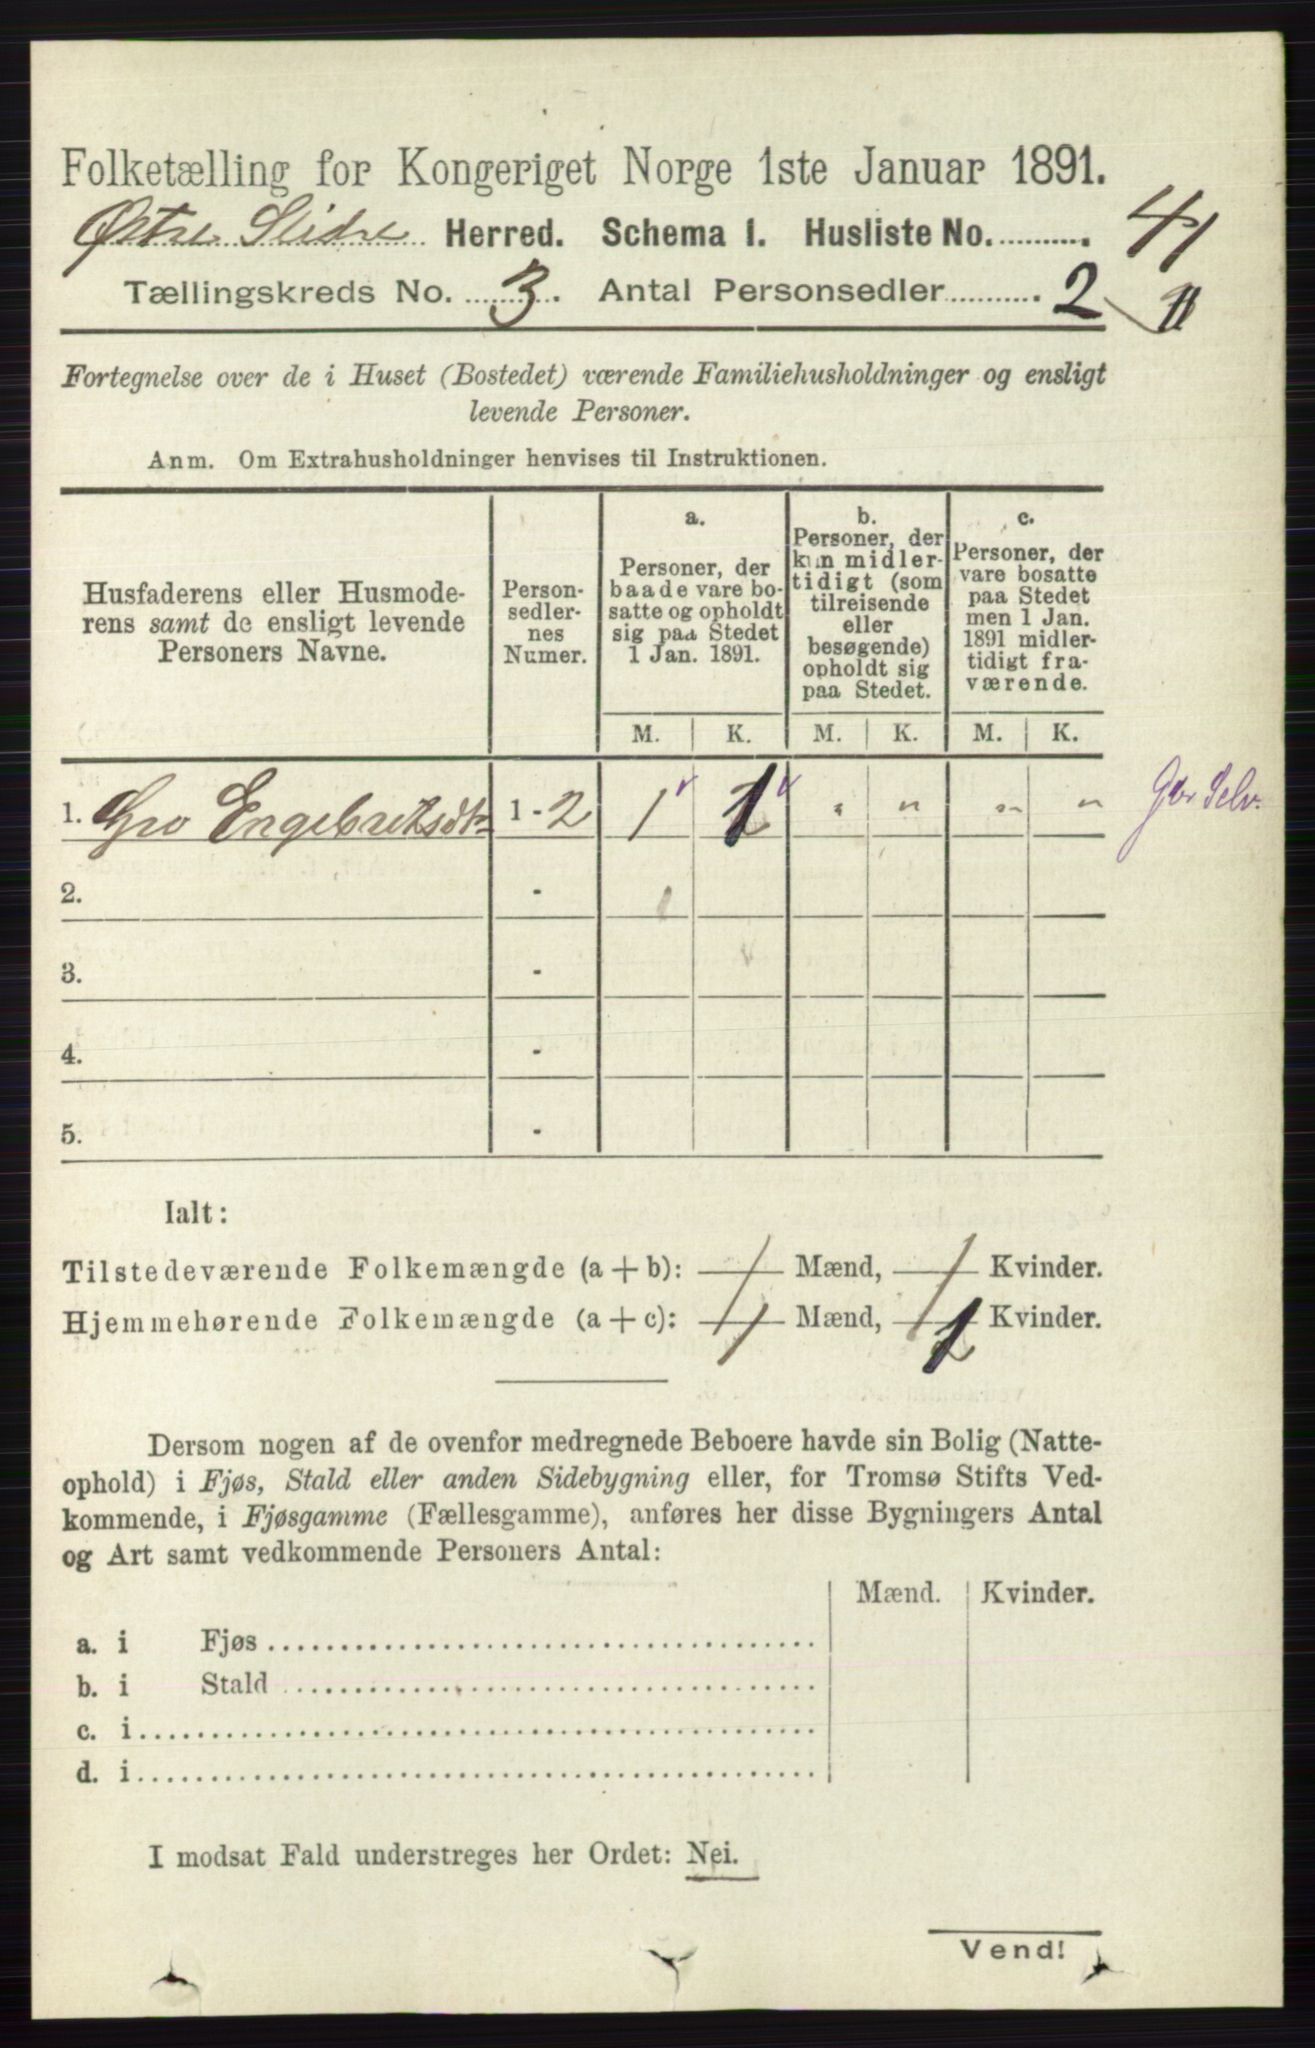 Folketælling for Kongeriget Norge 1ste Januar 1891.
Østre Slidre Herred. Schema 1. Husliste No. 41
Tællingskreds No. 3. Antal Personsedler 2
Fortegnelse over de i Huset (Bostedet) værende Familiehusholdninger og ensligt
levende Personer.
Anm. Om Extrahusholdninger henvises til Instruktionen.
Husfaderens eller Husmode-
rens samt de ensligt levende
Personers Navne.
Person-
sedler-
nes
Numer.
a.
Personer, der
baade vare bo-
satte og opholdt
sig paa Stedet
1 Jan. 1891.
b.
Personer, der
kun midler-
tidigt (som
tilreisende
eller
besøgende)
opholdt sig
paa Stedet.
c.
Personer, der
vare bosatte
paa Stedet
men 1 Jan.
1891 midler-
tidigt fra-
værende.
M. K. M. K. M. K.
1. Gro Engebretsdtr 1 - 2 1 1 " " " "
2. -
3. -
4. -
5. -
Ialt:
Tilstedeværende Folkemængde (a + b): 1 Mænd, 1 Kvinder.
Hjemmehørende Folkemængde (a + c): 1 Mænd, 1 Kvinder.
Dersom nogen af de ovenfor medregnede Beboere havde sin Bolig (Natte-
ophold) i Fjøs, Stald eller anden Sidebygning eller, for Tromsø Stifts Ved-
kommende, i Fjøsgamme (Fællesgamme), anføres her disse Bygningers Antal
og Art samt vedkommende Personers Antal:
Mænd. Kvinder.
a. i Fjøs
b. i Stald
c. i
d. i
I modsat Fald understreges her Ordet: Nei.
Vend!